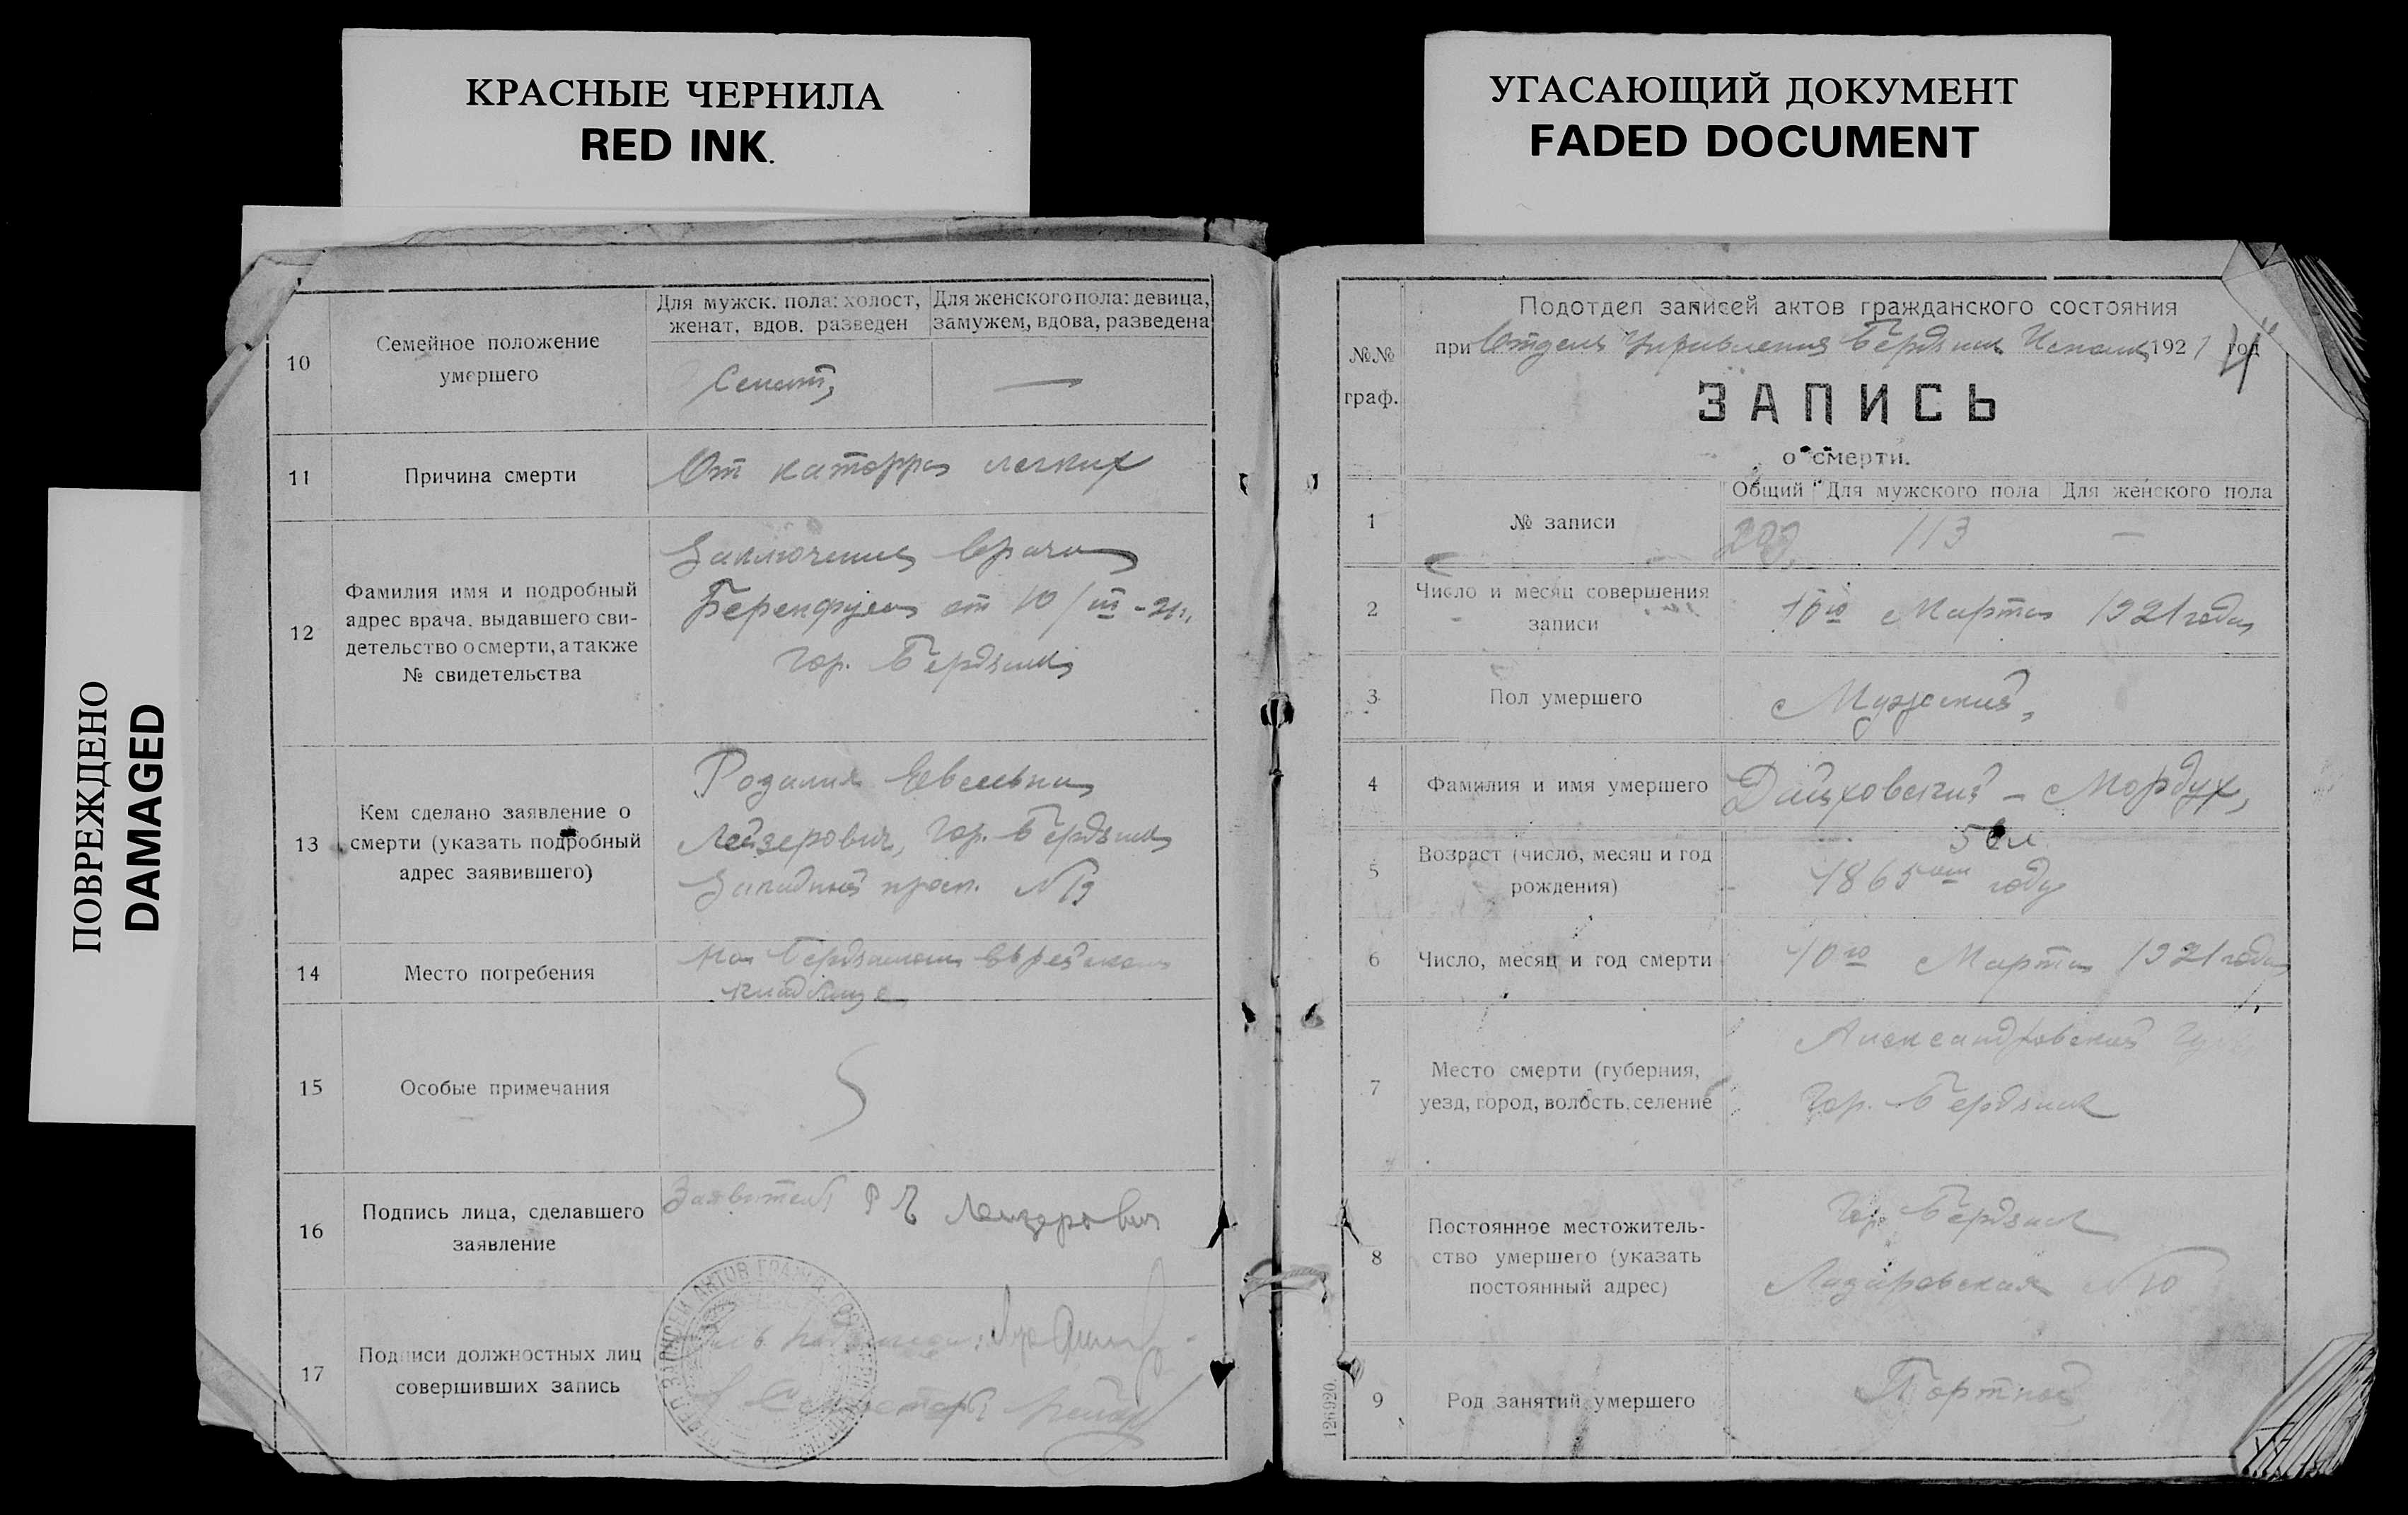 КРАСНЫЕ ЧЕРНИЛА
RED INK.
УГАСАЮЩИЙ ДОКУМЕНТ
FADED DOCUMENT
ПОВРЕЖДЕНО
DAMAGED
10
Семейное положение
умершего
Для мужск. пола: холост,
женат, вдов. разведен
Для женского пола: девица,
замужем, вдова, разведена
—
11
Причина смерти
От каторра легких
12
Фамилия имя и подробный
адрес врача, выдавшего сви-
детельство о смерти, а также
№ свидетельства
Заключение врача
от 10/III-21г.
гор. Бердянск
13
Кем сделано заявление о
смерти (указать подробный
адрес заявившего)
Розалия
Лейзерович, гор. Бердянск
Западный просп. №
14
Место погребения
На Бердянском еврейском
кладбище
15
Особые примечания
16
Подпись лица, сделавшего
заявление
Заявитель Р Лейзерович
17
Подписи должностных лиц
совершивших запись
№№
граф.
Подотдел записей актов гражданского состояния
при Отделе Управления Бердянск. 1921 год
ЗАПИСЬ
о смерти.
1
№ записи
Общий
Для мужского пола
Для женского пола
113
—
2
Число и месяц совершения
записи
10го Марта 1921 года
3
Пол умершего
Мужский,
4
Фамилия и имя умершего
Дайховский - Мордух,
5
Возраст (число, месяц и год
рождения)
1865ом году
6
Число, месяц и год смерти
10го Марта 1921 года
7
Место смерти (губерния,
уезд, город, волость, селение
Александровской
Гор. Бердянск
8
Постоянное местожитель-
ство умершего (указать
постоянный адрес)
Гор. Бердянск
Лазаревская № 10
9
Род занятий умершего
Портной
126920.